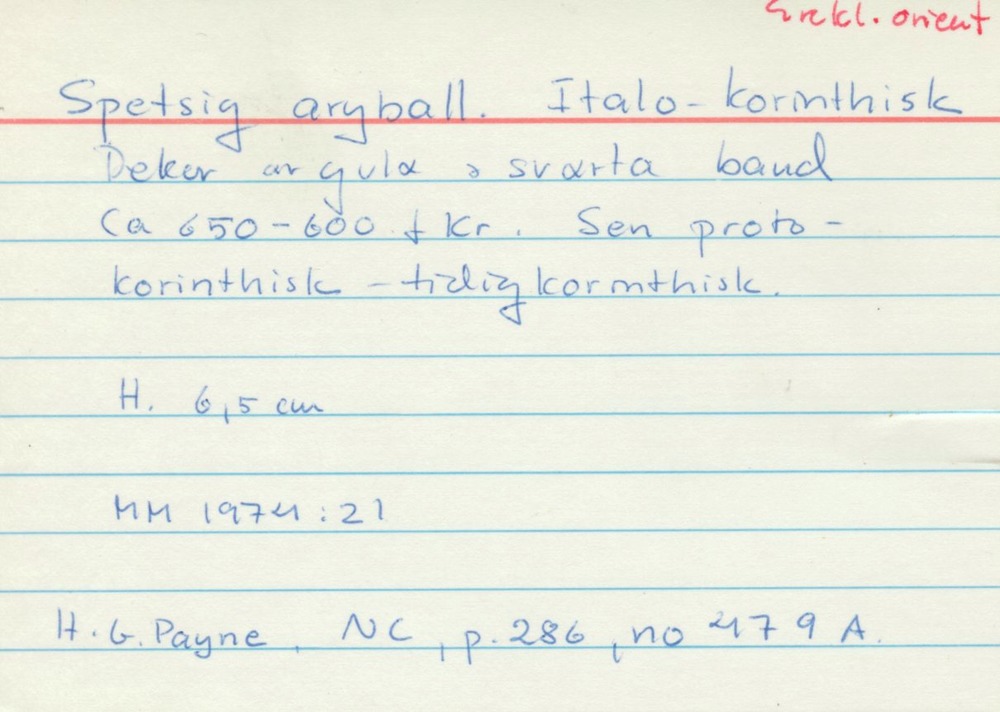 Grekl. orient
Spetsig aryball. Italo-korinthisk
Dekor av gula o svarta band
Ca 650-600 f Kr. Sen proto-
korinthisk - tidigkorinthisk.
H. 6,5 cm
MM 1974:21
H.G. Payne, NC, p.286, no 479 A.